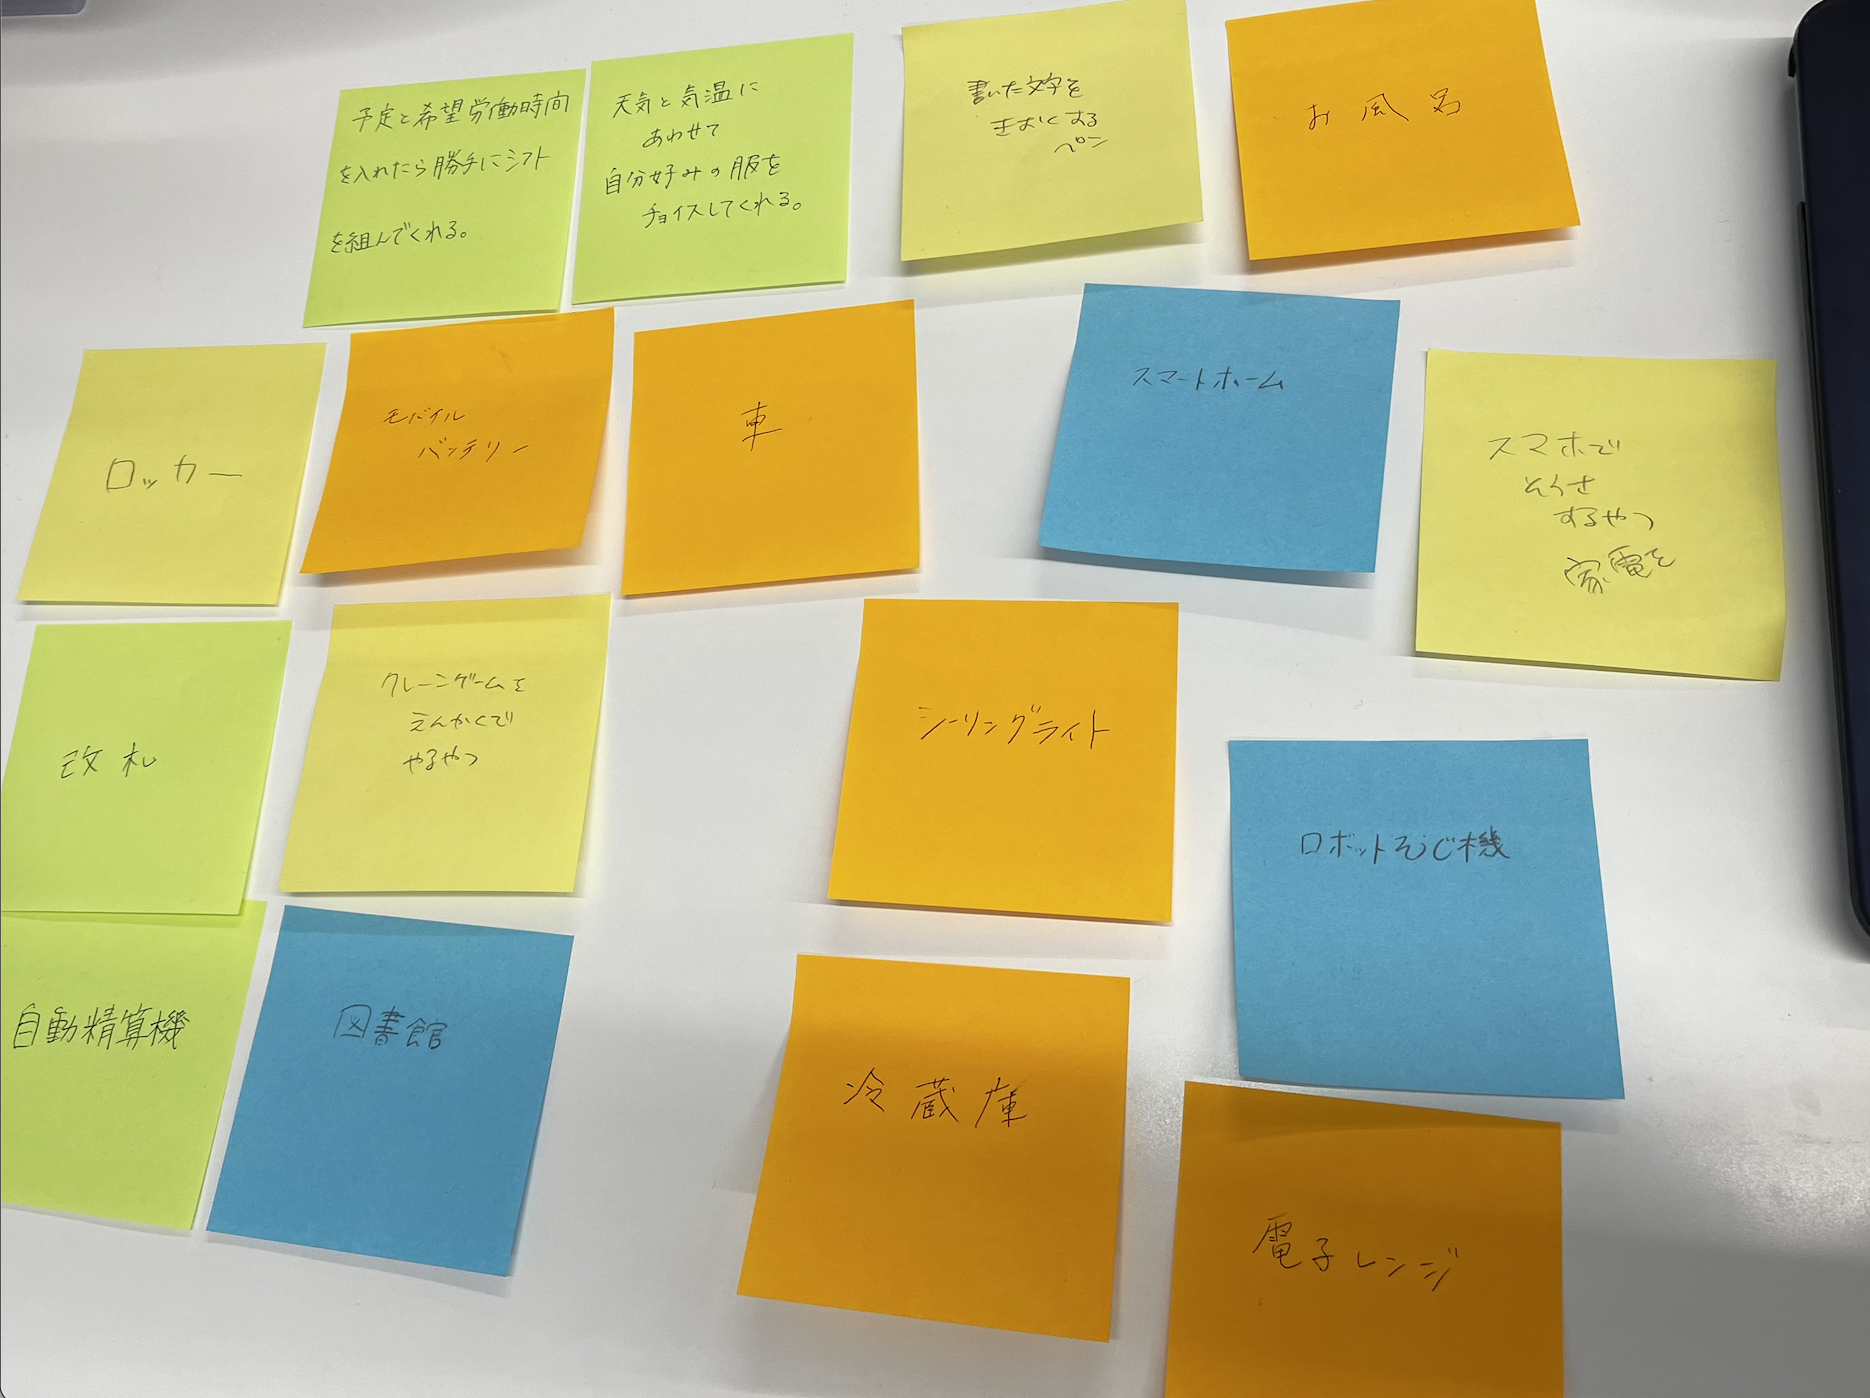 予定と希望労働時間
を入れたら勝手にシフト
を組んでくれる。
天気と気温に
あわせて
自分好みの服を
チョイスしてくれる。
書いた文字を
きおくする
ペン
お風呂
ロッカー
モバイル
バッテリー
車
スマートホーム
スマホで
そうさ
するやつ
家電を
改札
クレーンゲームを
えんかくで
やるやつ
シーリングライト
ロボットそうじ機
自動精算機
図書館
冷蔵庫
電子レンジ